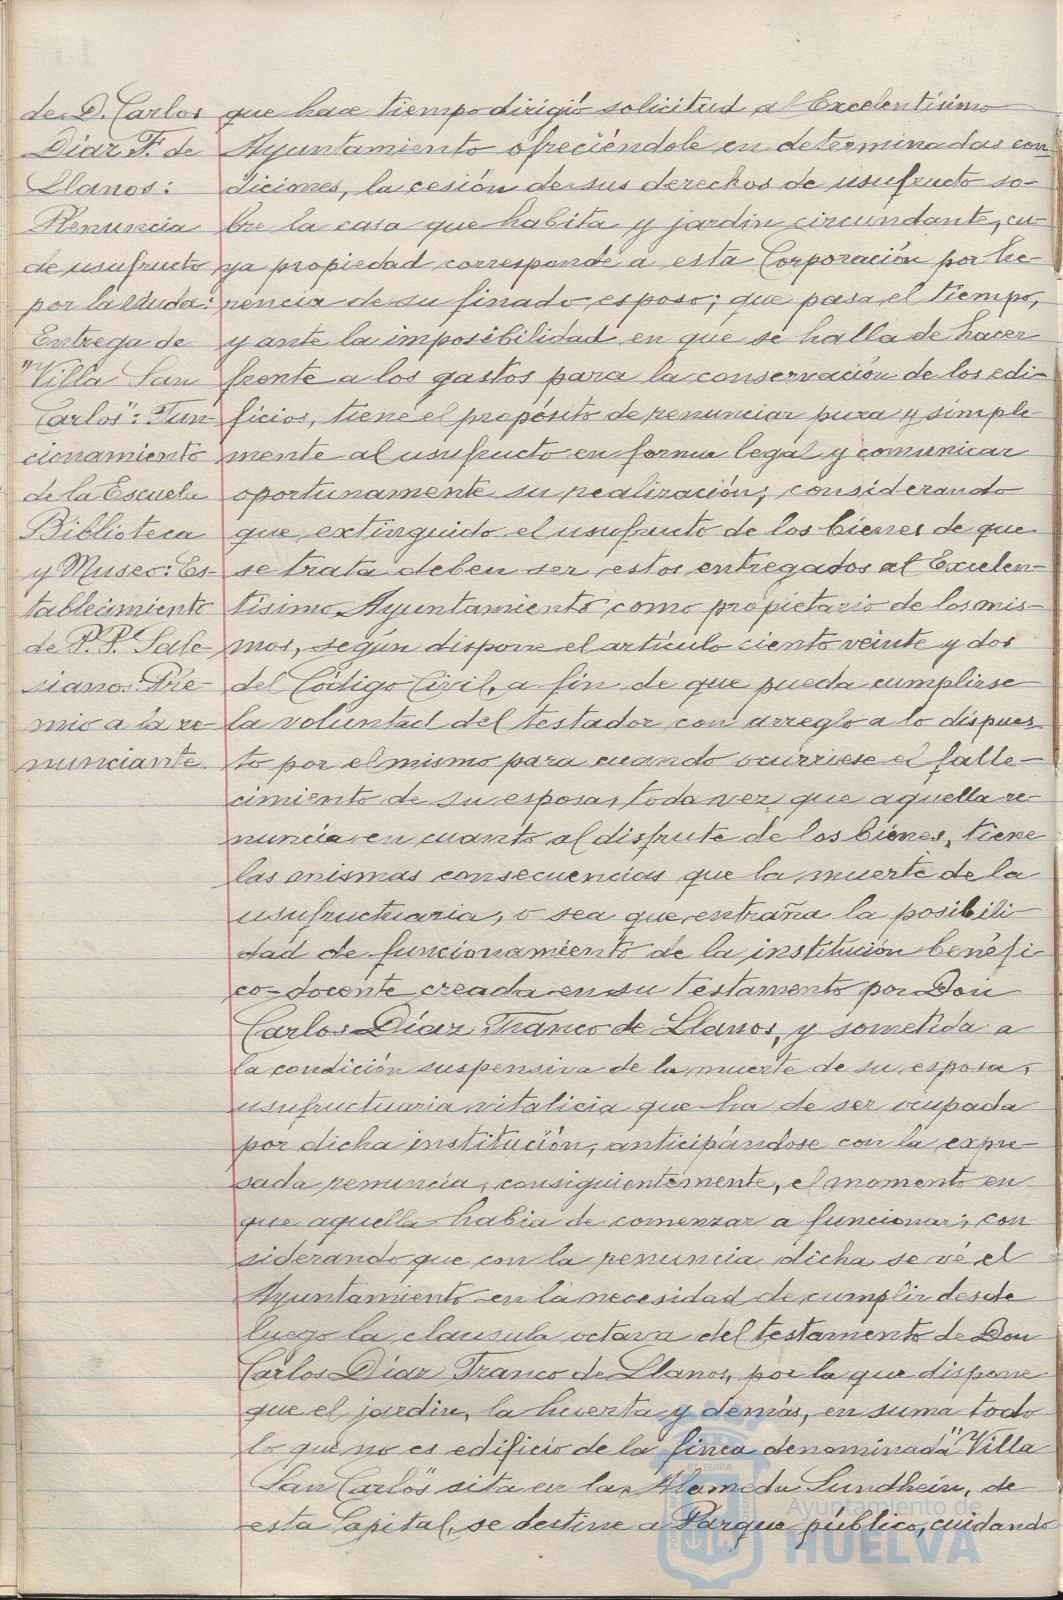 de D. Carlos
Díaz F. de
Llanos:
Renuncia
de usufructo
por la viuda:
Entrega de
"Villa San
Carlos": Fun-
cionamiento
de la Escuela
Biblioteca
y Museo: Es-
tablecimiento
de P.P. Sale-
sianos: Pre-
mio a la re-
nunciante.
que hace tiempo dirigió solicitud al Excelentísimo
Ayuntamiento ofreciéndole en determinadas con-
diciones, la cesión de sus derechos de usufructo so-
bre la casa que habita y jardín circundante, cu-
ya propiedad corresponde a esta Corporación por he-
rencia de su finado esposo; que pasa el tiempo,
y ante la imposibilidad en que se halla de hacer
frente a los gastos para la conservación de los edi-
ficios, tiene el propósito de renunciar pura y simple-
mente al usufructo en forma legal y comunicar
oportunamente su realización; considerando
que extinguido el usufructo de los bienes de que
se trata deben ser estos entregados al Excelen-
tísimo Ayuntamiento como propietario de los mis-
mos, según dispone el artículo ciento veinte y dos
del Código Civil, a fin de que pueda cumplirse
la voluntad del testador con arreglo a lo dispues-
to por el mismo para cuando ocurriese el falle-
cimiento de su esposa, toda vez que aquella re-
nuncia en cuanto al disfrute de los bienes, tiene
las mismas consecuencias que la muerte de la
usufructuaria, o sea que entraña la posibili-
dad de funcionamiento de la institución benéfi-
co-docente creada en su testamento por Don
Carlos Díaz Franco de Llanos, y sometida a
la condición suspensiva de la muerte de su esposa,
usufructuaria vitalicia que ha de ser ocupada
por dicha institución, anticipándose con la expre-
sada renuncia, consiguientemente, el momento en
que aquella habia de comenzar a funcionar; con
siderando que con la renuncia dicha se vé el
Ayuntamiento en la necesidad de cumplir desde
luego la clausula octava del testamento de Don
Carlos Díaz Franco de Llanos, por la que dispone
que el jardín, la huerta y demás, en suma todo
lo que no es edificio de la finca denominada "Villa
San Carlos" sita en la Alameda Sundhein, de
esta Capital, se destine a Parque público, cuidando
Ayuntamiento de
HUELVA